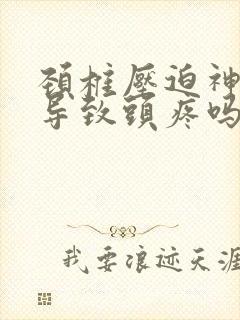 颈柱壓迫神
导致頭疼吗
我要浪迹天涯